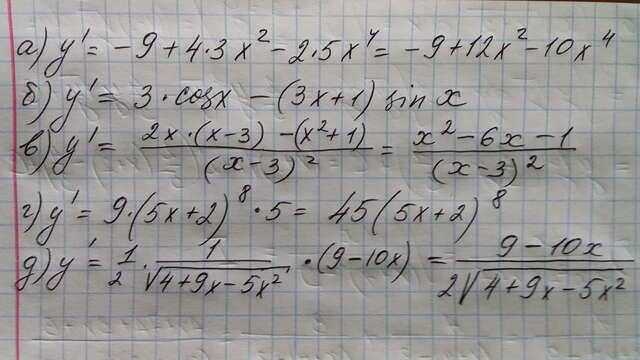 а) y' = -9 + 4·3x² - 2·5x⁴ = -9 + 12x² - 10x⁴
б) y' = 3·cosx - (3x+1) sin x
в) y' = (2x·(x-3) - (x²+1))/(x-3)² = (x² - 6x - 1)/(x-3)²
г) y' = 9·(5x+2)⁸·5 = 45(5x+2)⁸
д) y' = 1/2 · 1/√(4+9x-5x²) · (9-10x) = (9-10x)/(2√(4+9x-5x²))